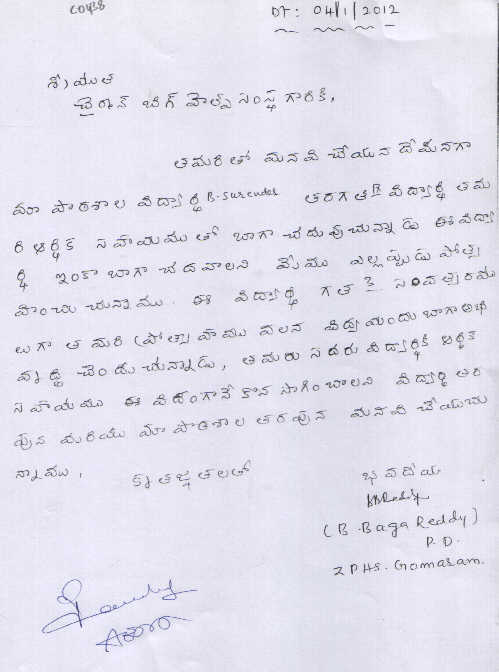 DT: 04/1/2012
శ్రీయుత
చైర్మన్ బిగ్ హెల్ప్ సంస్థ గారికి,
తమరితో మనవి చేయున దేమనగా
మా పాఠశాల విద్యార్థి B. Surender తరగతి విద్యార్థి తమ
రి ఆర్థిక సహాయము తో బాగా చదువుచున్నాడు ఈ విద్యా
ర్థి ఇంకా బాగా చదవాలని మేము ఎల్లప్పుడు ప్రోత్స
హించు చున్నాము. ఈ విద్యార్థి గత 3 సంవత్సరము
లుగా తమరి ప్రోత్సాహము వలన విద్య యందు బాగా అభి
వృద్ధి చెందుచున్నాడు, తమరు సదరు విద్యార్థికి ఆర్థిక
సహాయము ఈ విధంగానే కొన సాగించాలని విద్యార్థి తర
పున మరియు మా పాఠశాల తరపున మనవి చేయుచు
న్నాము.
కృతజ్ఞతలతో
భవదీయ
BBReddy
(B. Baga Reddy)
P.D.
ZPHS. Gomaram.